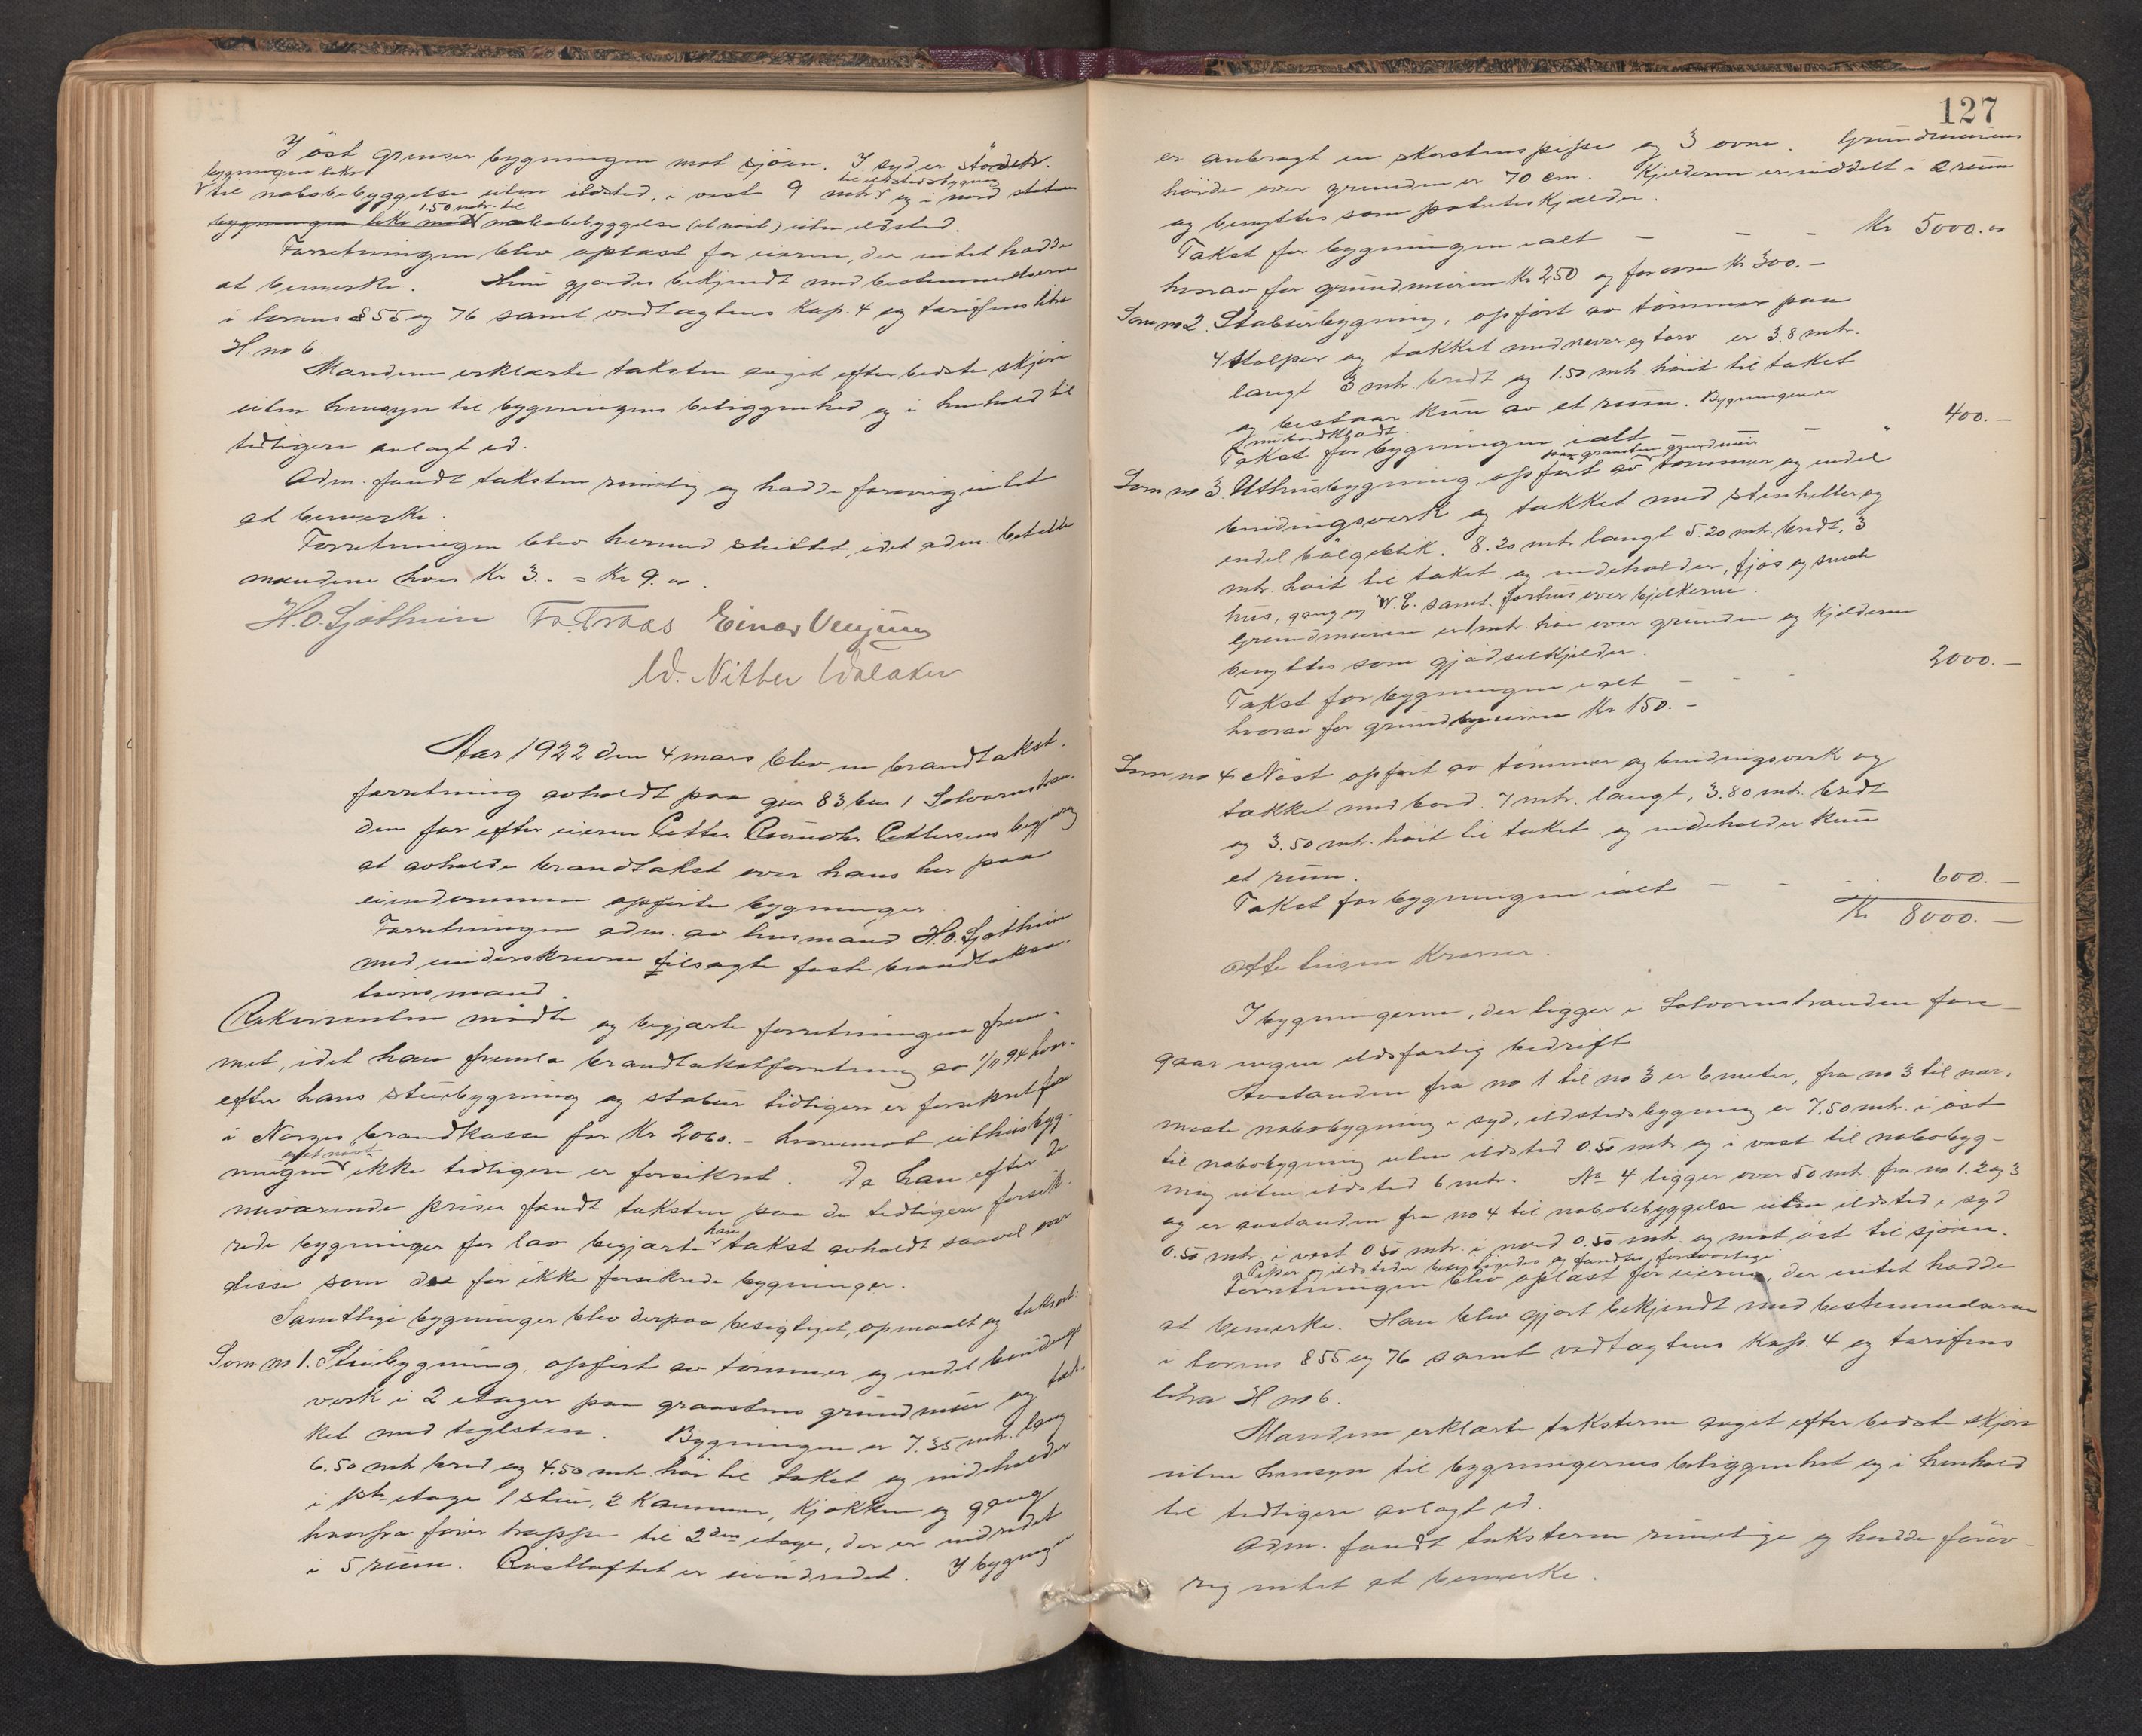 I øst grenser bygningen mot sjøen. I syd er støter
bygningen like
til nabobebyggelse uten ildsted, i vest 9 mtr. til ildstedsbygning og i nord støter
bygningen like med 1.50 mtr. til nabobebyggelse (et nøst) uten ildsted.
Forretningen blev oplæst for eieren, der intet hadde
at bemerke. Hun gjordes bekjendt med bestemmelserne
i lovens § 55 og 76 samt vedtægtens Kap. 4 og tarifens litra
H. no 6.
Mændene erklærte taksten avgit efter bedste skjøn
uten hensyn til bygningens beliggenhed og i henhold til
tidligere avlagt ed.
Adm. fandt taksten rimelig og hadde forøvrig intet
at bemerke.
Forretningen blev hermed sluttet, idet adm. betalte
mændene hver Kr 3.- = Kr 9.00.
H.O. Sjøthun T. Traas Einar Venjum
W. Nitter Walaker
Aar 1922 den 4 mars blev en brandtakst-
forretning avholdt paa gnr 83 bnr 1 Solvornstran-
den for efter eieren Petter Pettersens begjæring
at avholde brandtakst over hans her paa
eiendommen opførte bygninger
Forretningen adm. av lensmand H.O. Sjøthun
med underskrevne tilsagte faste brandtaksa-
tionsmænd.
Rekvirenten mødte og begjærte forretningen frem-
met, idet han fremla brandtakstforretning av 1/11 94 hvor-
efter hans stuebygning og stabur tidligere er forsikret for
i Norges brandkasse for Kr 2060.- hvorimot uthusbyg-
ningen og et nøst ikke tidligere er forsikret. Da han efter de
nuværende priser fandt taksten paa de tidligere forsik-
rede bygninger for lav begjærte han takst avholdt saavel over
disse som de før ikke forsikrede bygninger.
Samtlige bygninger blev derpaa besigtiget, opmaalt og taksert:
Som no 1. Stuebygning, opført av tømmer og endel bindings
verk i 2 etager paa graastens grundmur og tæk-
ket med teglsten. Bygningen er 7.35 mtr. lang
6.50 mtr bred og 4.50 mtr. høi til taket og indeholder
i 1ste etage 1 stue, 2 Kammer, kjøkken og gang
hvorfra fører trappe til 2den etage, der er indredet
i 5 rum. Røstloftet er uindredet. I bygningen
127
er anbragt en skorstenspipe og 3 ovne. Grundmurens
høide over grunden er 70 cm. Kjelderen er inddelt i 2 rum
og benyttes som potetkjælder.
Takst for bygningen ialt - - - Kr 5000.00
hvorav for grundmuren Kr 250 og for ovne Kr 300.-
Som no 2. Stabursbygning, opført av tømmer paa
4 stolper og tækket med never og torv er 3.8 mtr.
langt 3 mtr. bredt og 1.50 mtr. høit til taket
og bestaar kun av et rum. Bygningen er
bordklædt.
Takst for bygningen ialt - - " 400.-
Som no 3. Uthusbygning, opført paa graastens grundmur av tømmer og endel
bindingsverk og tækket med stenheller og
endel bølgeblik. 8.20 mtr langt 5.20 mtr. bredt, 3
mtr. høit til taket og indeholder, fjøs og smale
hus, gang og W.C. samt. forhus over bjelkerne.
Grundmuren er 1 mtr. høi over grunden og kjelderen
benyttes som gjødselkjelder.
Takst for bygningen ialt - - - 2000.-
hvorav for grundmuren Kr 150.-
Som no 4 Nøst opført av tømmer og bindingsverk og
tækket med bord. 7 mtr. langt, 3.80 mtr. bredt
og 3.50 mtr. høit til taket og indeholder kun
et rum.
Takst for bygningen ialt - - - 600.-
Kr 8000.-
Otte tusen Kroner.
I bygningerne, der ligger i Solvornstranden fore-
gaar ingen ildsfarlig bedrift
Avstanden fra no 1 til no 3 er 6 meter, fra no 3 til nær-
meste nabobygning i syd, ildstedsbygning er 7.50 mtr. i øst
til nabobygning uten ildsted 0.50 mtr. og i vest til nabobyg-
ning uten ildsted 6 mtr. No 4 ligger over 50 mtr. fra no 1. 2 og 3
og er avstanden fra no 4 til nabobebyggelse uten ildsted i syd
0.50 mtr. i vest 0.50 mtr. i nord 0.50 mtr. og mot øst til sjøen.
Piper og ildsteder besigtigedes og fandtes forsvarlige
Forretningen blev oplæst for eieren, der intet hadde
at bemerke. Han blev gjort bekjendt med bestemmelserne
i lovens § 55 og 76 samt vedtægtens Kap. 4 og tarifens
litra H no 6.
Mændene erklærte taksterne avgit efter bedste skjøn
uten hensyn til bygningernes beliggenhet og i henhold
til tidligere avlagt ed.
Adm. fandt taksterne rimelige og hadde forøv-
rig intet at bemerke.